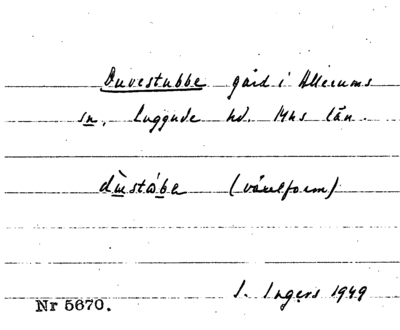 Duvestubbe gård i Allerums
sn, Luggude hd. Mhs län.
dùstòbe (växelform)
I. Ingers 1949
Nr 5670.